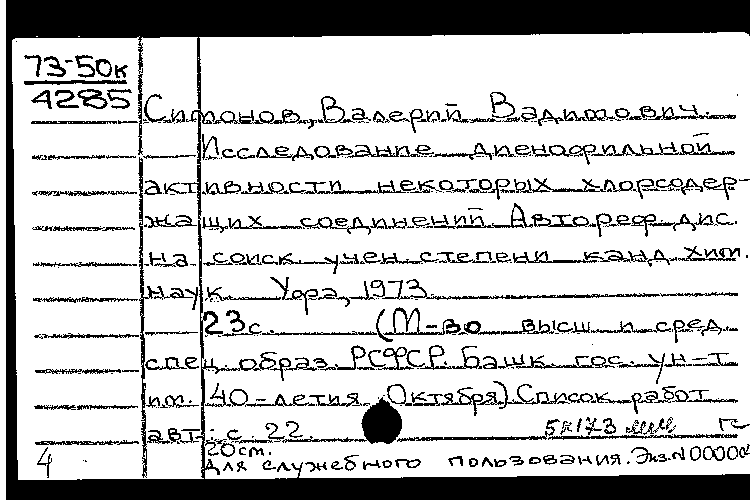 73-50к
4285
Симонов, Валерий Вадимович.
Исследование диенофильной
активности некоторых хлорсодер-
жащих соединений. Автореф. дис.
на соиск. учен. степени канд. хим.
наук. Уфа, 1973.
23с. (М-во высш. и сред.
спец. образ. РСФСР. Башк. гос. ун-т
им. 40-летия Октября). Список работ
авт.: с. 22.
20см.
4 Для служебного пользования. Экз.N